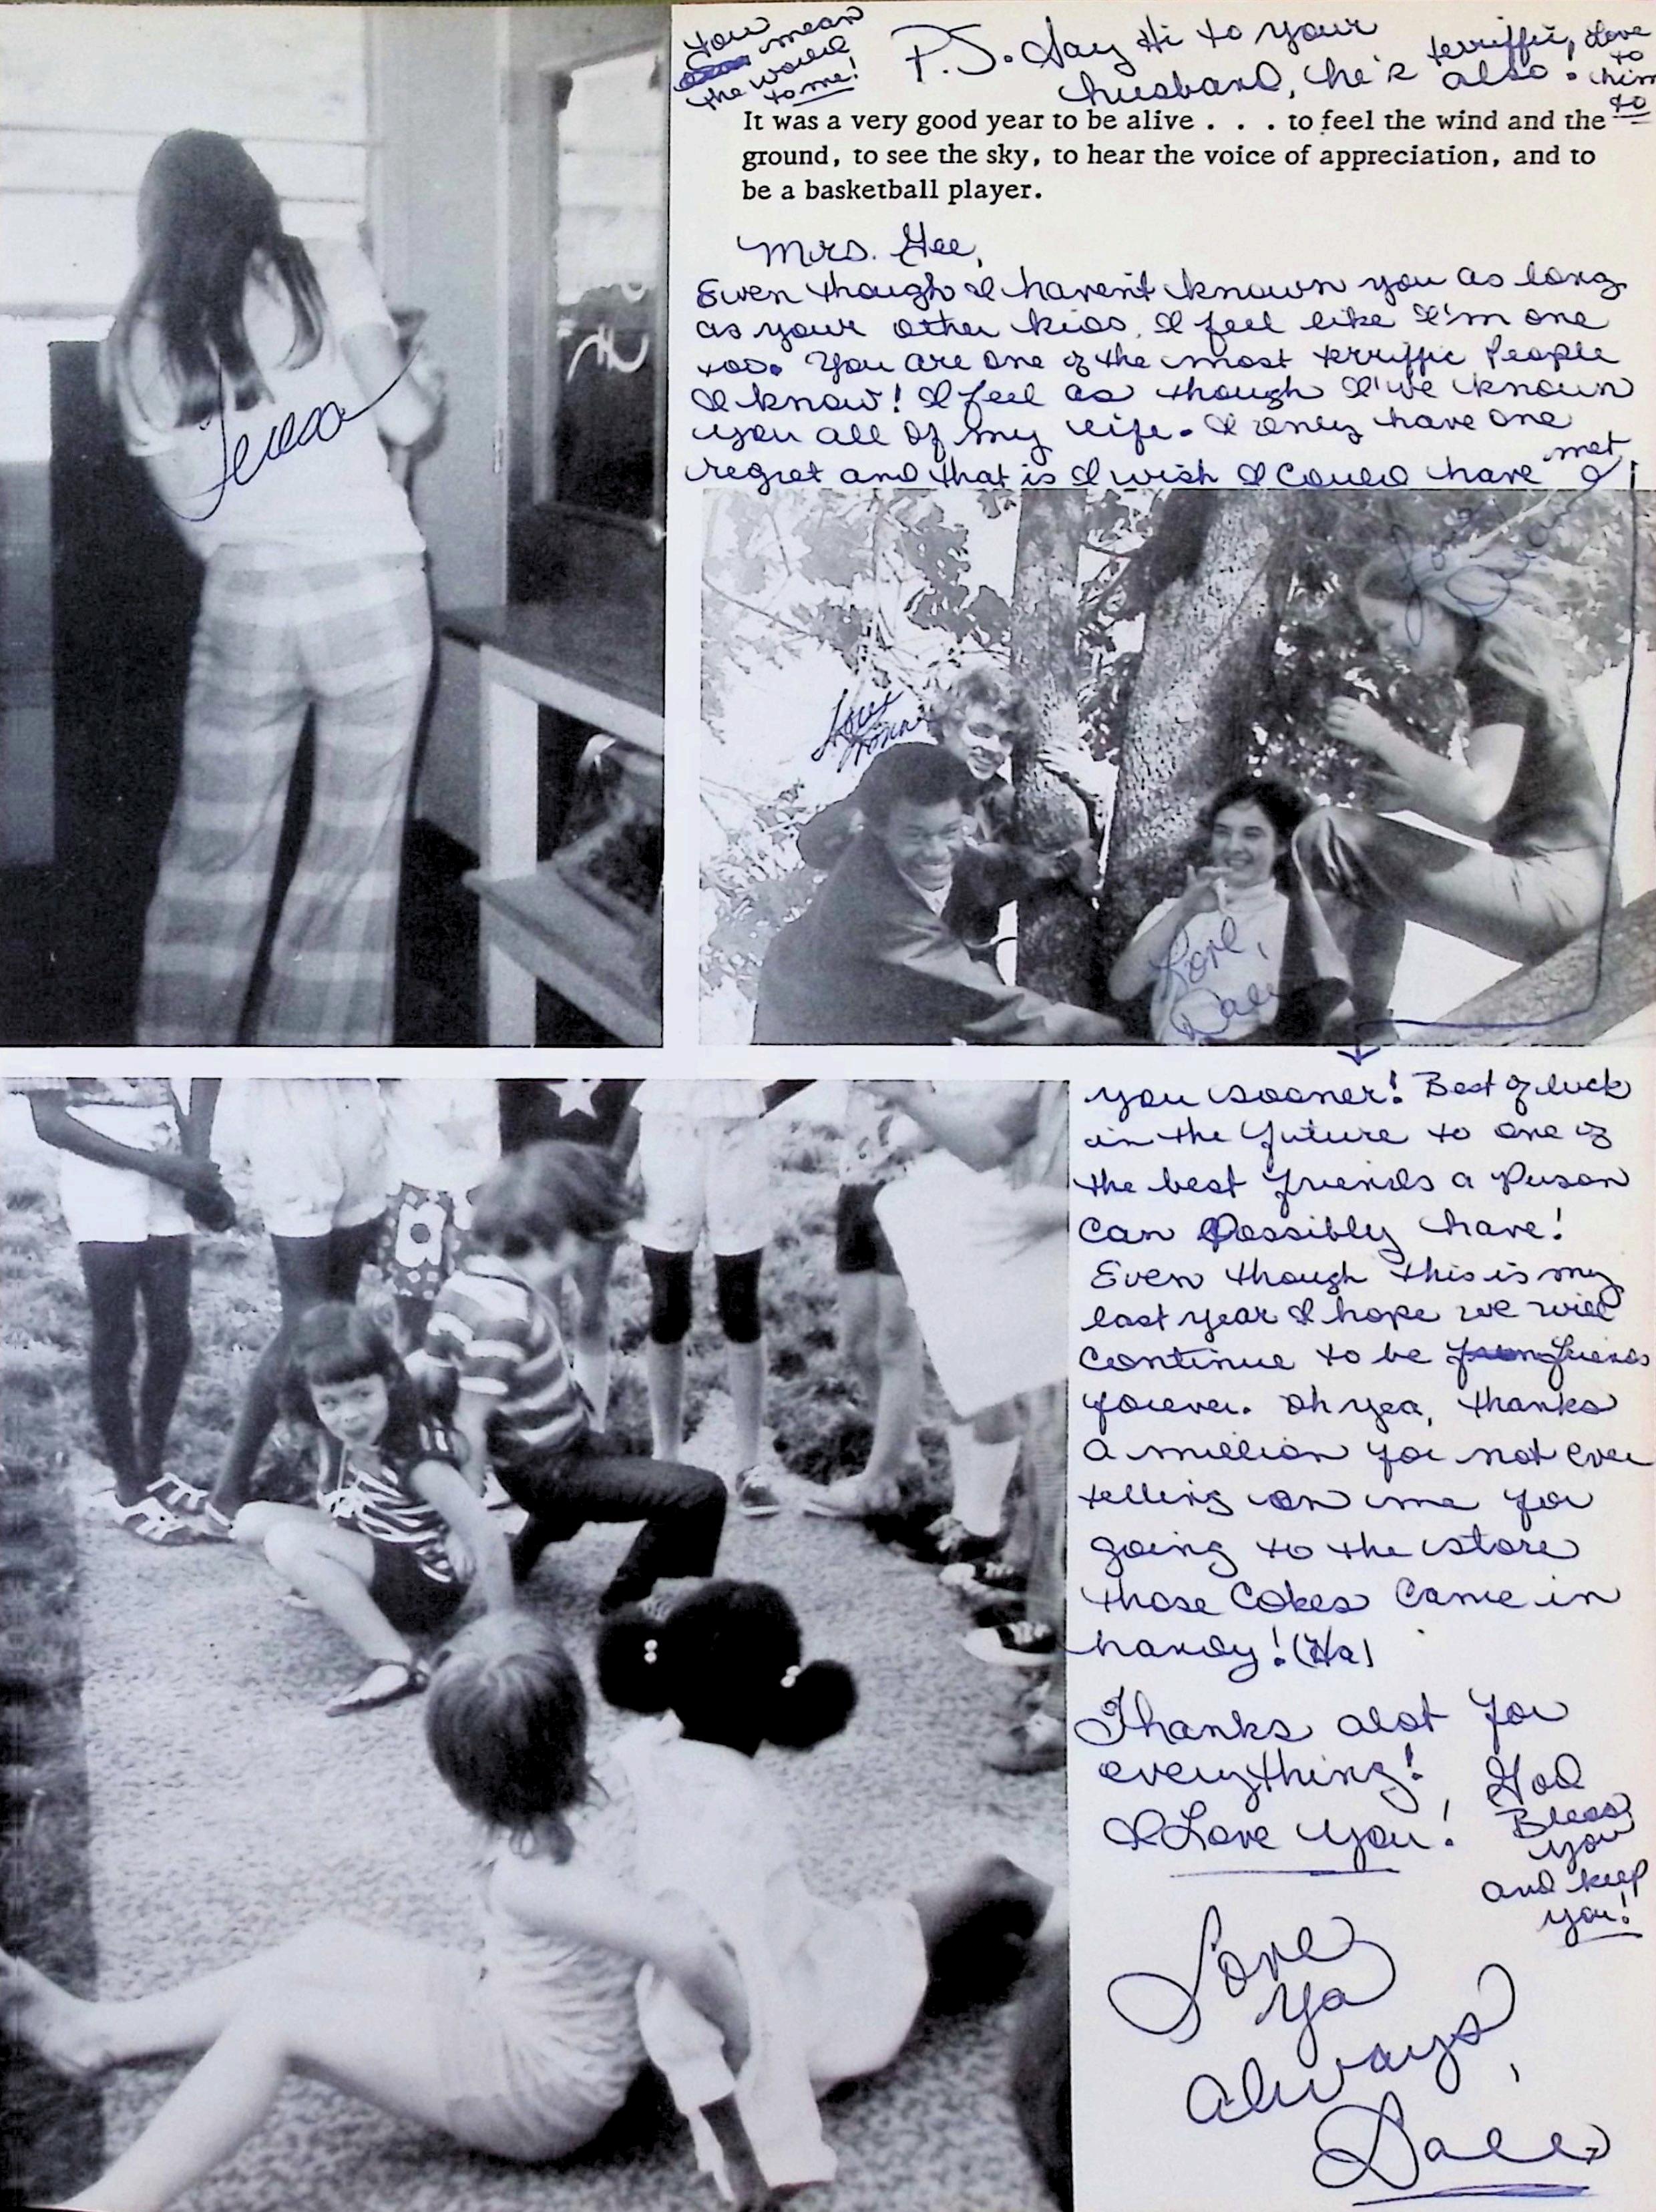 You mean
the world
to me!
P.S. Say Hi to your
husband, he's terriffic, also.
Love
to
him
to
It was a very good year to be alive . . . to feel the wind and the
ground, to see the sky, to hear the voice of appreciation, and to
be a basketball player.
Mrs. Gee,
Even though I haven't known you as long
as your other kids, I feel like I'm one
too. You are one of the most terriffic People
I know! I feel as though I've known
you all of my life. I only have one
regret and that is I wish I could have met
Teresa
Love
Love
Love,
Dale
you sooner! Best of luck
in the future to one of
the best friends a Person
can Possibly have!
Even though this is my
last year I hope we will
continue to be friends
forever. Oh yea, thanks
a million for not ever
telling on me for
going to the store
those Cokes Came in
handy! (Ha)
Thanks alot for
everything!
I Love you!
God
Bless
you
and keep
you!
Love
Ya
Always,
Dale